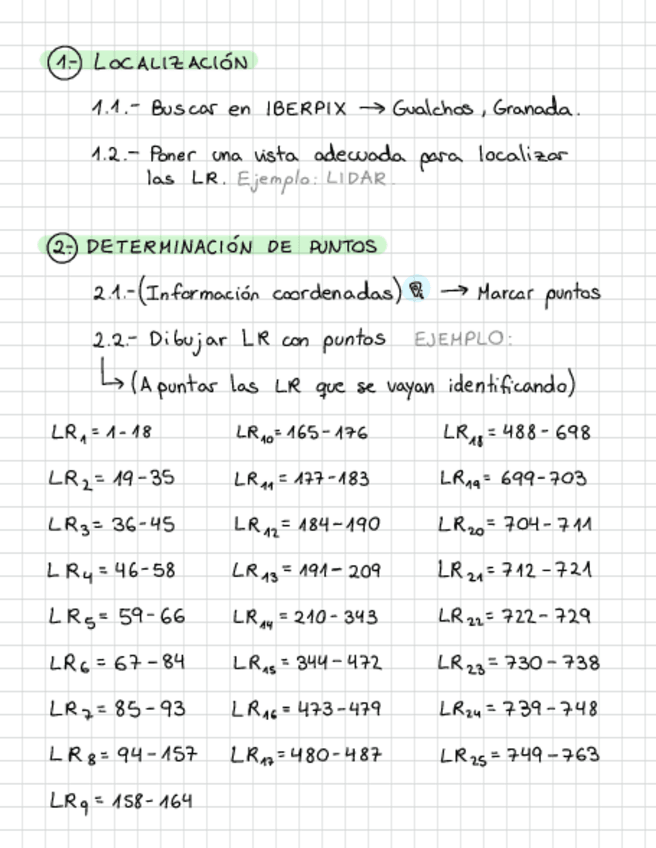 1.- LOCALIZACIÓN
1.1.- Buscar en IBERPIX → Gualchos, Granada.
1.2.- Poner una vista adecuada para localizar
las LR. Ejemplo: LIDAR.
2.- DETERMINACIÓN DE PUNTOS
2.1.- (Información coordenadas) → Marcar puntos
2.2.- Dibujar LR con puntos EJEMPLO:
↳ (Apuntar las LR que se vayan identificando)
LR₁ = 1-18
LR₂ = 19-35
LR₃ = 36-45
LR₄ = 46-58
LR₅ = 59-66
LR₆ = 67-84
LR₇ = 85-93
LR₈ = 94-157
LR₉ = 158-164
LR₁₀ = 165-176
LR₁₁ = 177-183
LR₁₂ = 184-190
LR₁₃ = 191-209
LR₁₄ = 210-343
LR₁₅ = 344-472
LR₁₆ = 473-479
LR₁₇ = 480-487
LR₁₈ = 488-698
LR₁₉ = 699-703
LR₂₀ = 704-711
LR₂₁ = 712-721
LR₂₂ = 722-729
LR₂₃ = 730-738
LR₂₄ = 739-748
LR₂₅ = 749-763